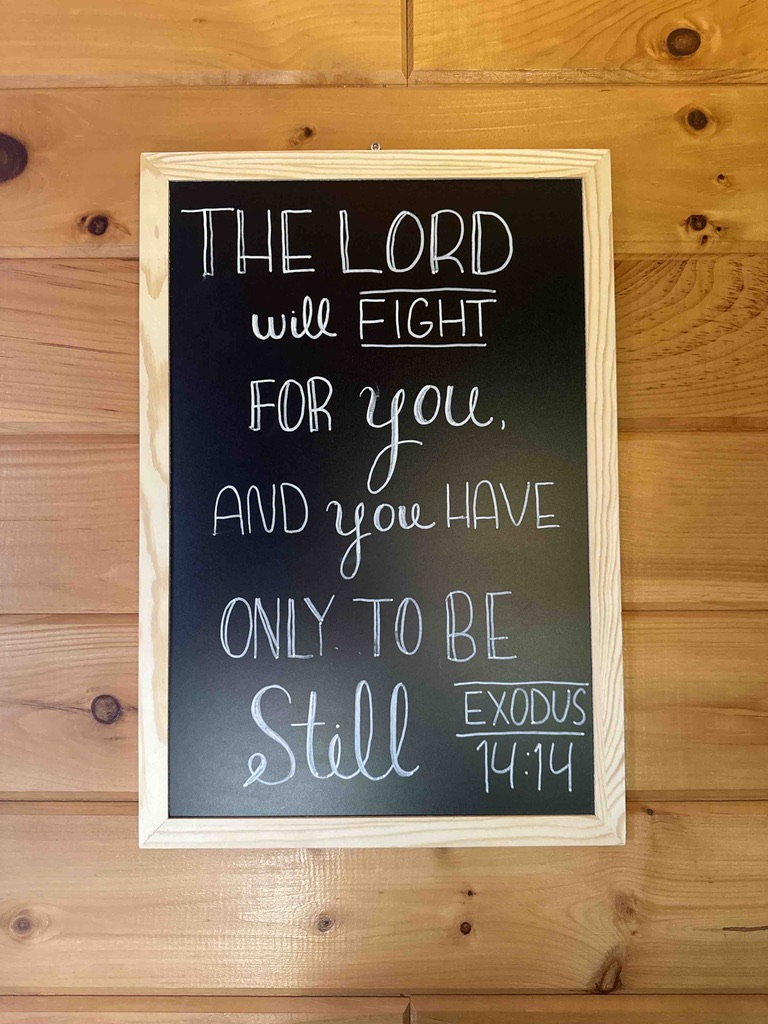 THE LORD
will FIGHT
FOR you,
AND you HAVE
ONLY TO BE
Still
EXODUS
14:14